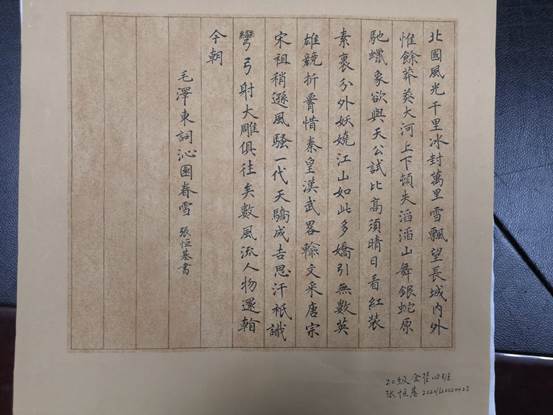 北國風光千里冰封萬里雪飄望長城內外
惟餘莽莽大河上下頓失滔滔山舞銀蛇原
馳蠟象欲與天公試比高須晴日看紅裝
素裹分外妖嬈江山如此多嬌引無數英
雄競折腰惜秦皇漢武略輸文采唐宗
宋祖稍遜風騷一代天驕成吉思汗衹識
彎弓射大雕俱往矣數風流人物還看
今朝
毛澤東詞沁園春雪 張恒基書
20級金管四班
張恒基